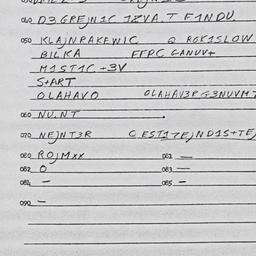 040 D3GREJN1C 1ZVA.T F1NDU.
050 KLAJNPAKEWIC Q ROK1SLOW
BILKA EFPC GANUV+
M1ST1C-+3V
S+ART
OLAHAVO OLAHAV3P G3NUVM
060 NU.NT .
070 NEJNT3R
080 ROJMXX 081 —
082 O 083 —
084 – 085 —
090 –